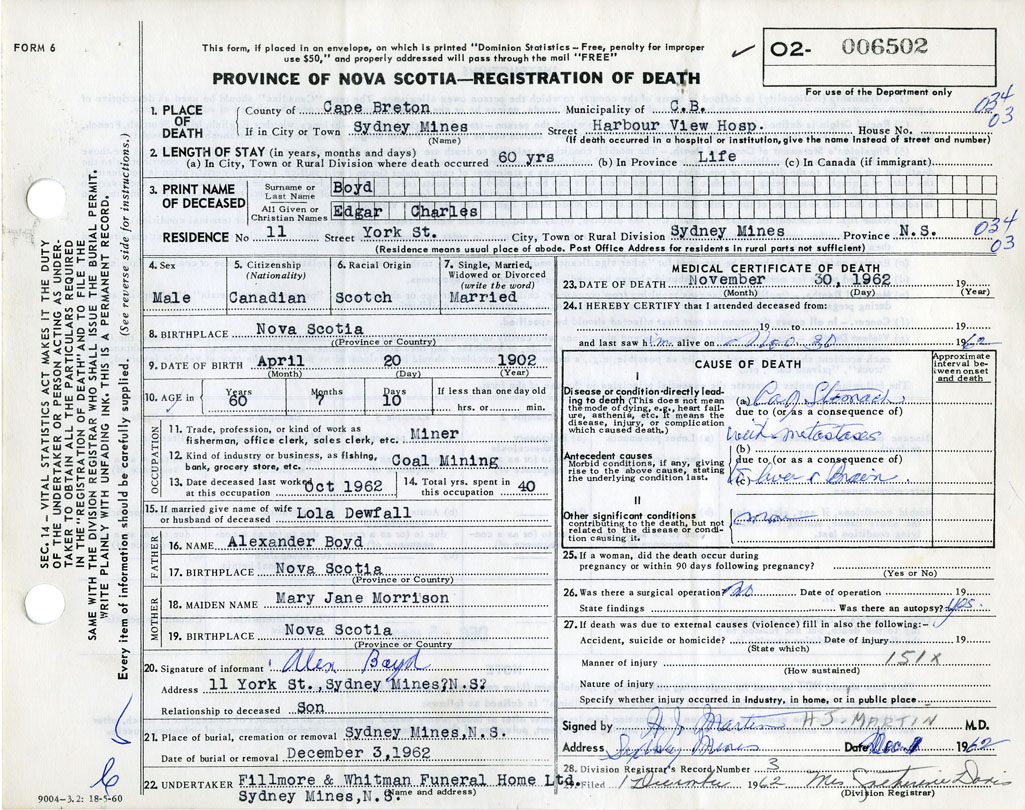 FORM 6
This form, if placed in an envelope, on which is printed "Dominion Statistics – Free, penalty for improper
use $50," and properly addressed will pass through the mail "FREE"
✓ O2- 006502
PROVINCE OF NOVA SCOTIA—REGISTRATION OF DEATH
For use of the Department only
034
03
1. PLACE OF DEATH County of Cape Breton Municipality of C.B.
If in City or Town Sydney Mines Street Harbour View Hosp. House No.
(Name) (If death occurred in a hospital or institution, give the name instead of street and number)
2. LENGTH OF STAY (in years, months and days)
(a) In City, Town or Rural Division where death occurred 60 yrs (b) In Province Life (c) In Canada (if immigrant)
3. PRINT NAME OF DECEASED Surname or Last Name Boyd
All Given or Christian Names Edgar Charles
034
03
RESIDENCE No 11 Street York St. City, Town or Rural Division Sydney Mines Province N.S.
(Residence means usual place of abode. Post Office Address for residents in rural parts not sufficient)
4. Sex Male
5. Citizenship (Nationality) Canadian
6. Racial Origin Scotch
7. Single, Married, Widowed or Divorced (write the word) Married
8. BIRTHPLACE Nova Scotia
(Province or Country)
9. DATE OF BIRTH April 20 1902
(Month) (Day) (Year)
10. AGE in Years 60 Months 7 Days 10 If less than one day old
hrs. or min.
OCCUPATION
11. Trade, profession, or kind of work as
fisherman, office clerk, sales clerk, etc. Miner
12. Kind of industry or business, as fishing,
bank, grocery store, etc. Coal Mining
13. Date deceased last worked
at this occupation Oct 1962
14. Total yrs. spent in
this occupation 40
15. If married give name of wife
or husband of deceased Lola Dewfall
FATHER
16. NAME Alexander Boyd
17. BIRTHPLACE Nova Scotia
(Province or Country)
MOTHER
18. MAIDEN NAME Mary Jane Morrison
19. BIRTHPLACE Nova Scotia
(Province or Country)
20. Signature of informant Alex Boyd
Address 11 York St., Sydney Mines?N.S?
Relationship to deceased Son
21. Place of burial, cremation or removal Sydney Mines, N.S.
Date of burial or removal December 3,1962
22. UNDERTAKER Fillmore & Whitman Funeral Home Ltd.
Sydney Mines, N.S.
(Name and address)
MEDICAL CERTIFICATE OF DEATH
23. DATE OF DEATH November 30, 1962 19
(Month) (Day) (Year)
24. I HEREBY CERTIFY that I attended deceased from:
19 to 19
and last saw him alive on Nov 30 1962
CAUSE OF DEATH
Approximate interval between onset and death
I
Disease or condition directly leading to death (This does not mean
the mode of dying, e.g., heart failure, asthenia, etc. It means the
disease, injury, or complication which caused death.)
(a) Ca of Stomach
due to (or as a consequence of)
with metastases
Antecedent causes
Morbid conditions, if any, giving rise to the above cause, stating
the underlying condition last.
(b)
due to (or as a consequence of)
(c) to Liver & Brain.
II
Other significant conditions
contributing to the death, but not related to the disease or condition causing it.
25. If a woman, did the death occur during
pregnancy or within 90 days following pregnancy?
(Yes or No)
26. Was there a surgical operation? no Date of operation 19
State findings Was there an autopsy? yes.
27. If death was due to external causes (violence) fill in also the following:–
Accident, suicide or homicide? Date of injury 19
(State which)
Manner of injury 151x
(How sustained)
Nature of injury
Specify whether injury occurred in industry, in home, or in public place
Signed by A J Martin A J - MARTIN M.D.
Address Sydney Mines Date Dec. 1 1962
28. Division Registrar's Record Number 3
29. Filed 1 December 1962 Mrs Davis
(Division Registrar)
SEC. 14 – VITAL STATISTICS ACT MAKES IT THE DUTY
OF THE UNDERTAKER OR PERSON ACTING AS UNDERTAKER TO OBTAIN ALL THE PARTICULARS REQUIRED
IN THE "REGISTRATION OF DEATH" AND TO FILE THE
SAME WITH THE DIVISION REGISTRAR WHO SHALL ISSUE THE BURIAL PERMIT.
WRITE PLAINLY WITH UNFADING INK. THIS IS A PERMANENT RECORD.
Every item of information should be carefully supplied. (See reverse side for instructions.)
9004-3.2: 18-5-60